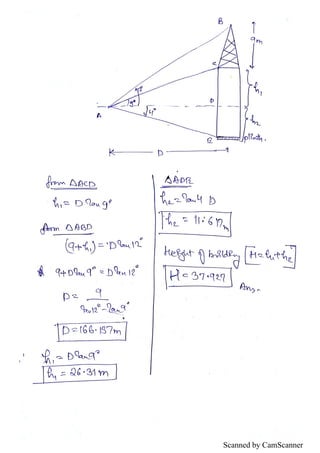 B
9m
C
12°
9°
h₁
A
D
4°
h₂
E
plinth.
D
from ΔACD
h₁ = D tan 9°
from ΔABD
(9+h₁) = D tan 12°
9+D tan 9° = D tan 12°
D = 9
tan 12° - tan 9°
D = 166.157m
∴ h₁ = D tan 9°
h₁ = 26.31 m
ΔADE
h₂ = tan 4 D
h₂ = 11.617m
Height of building H = h₁+h₂
H = 37.927
Ans.
Scanned by CamScanner